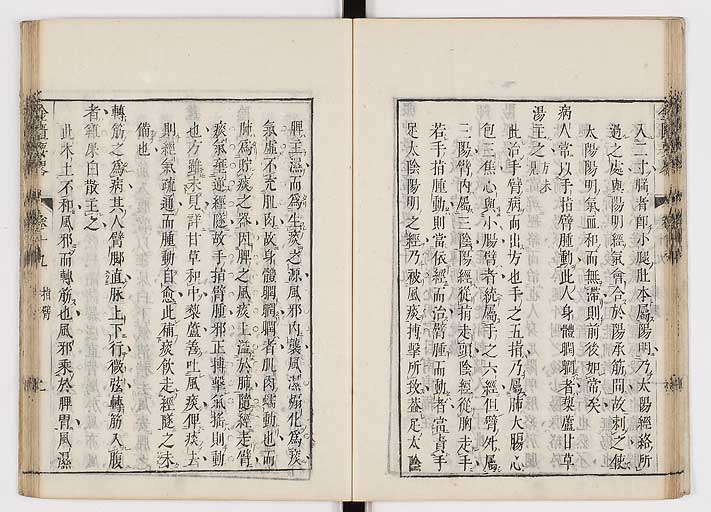 入二寸腨者即小腿肚本屬陽明乃太陽經絡所
過之處與陽明經氣會合於陽承筋間故刺之使
太陽陽明氣血和而無滯則前後如常矣
病人常以手指臂腫動此人身體瞤瞤者藜蘆甘草
湯主之 方未見
此治手臂病而出方也手之五指乃屬肺大腸心
包三焦心與小腸臂者統屬手之六經但臂外屬
三陽臂內屬三陰陽經從指走頭陰經從胸走手
若手指腫動則當依經而治臂腫而動者當責手
足太陰陽明之經乃被風痰搏擊所致蓋足太陰
脾主濕而為生痰之源風邪內襲風濕煽化為痰
氣虛不充肌肉故身體瞤瞤瞤者肌肉蠕動也而
肺為貯痰之器因脾之風痰上溢於肺隨經走臂
痰氣壅遏經隧故手指臂腫邪正搏擊氣搐則動
也方雖未見詳甘草和中藜蘆善吐風痰俾痰去
則經氣疏通而腫動自愈此補痰飲走經隧之未
備也
轉筋之為病其人臂腳直脈上下行微弦轉筋入腹
者雞屎白散主之
此木土不和風邪而轉筋也風邪乘於脾胃風濕
卷十九
指臂